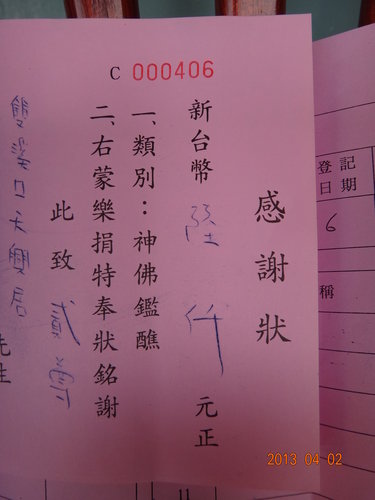 C 000406
感謝狀
新台幣 陸仟 元正
一、類別：神佛鑑醮
二、右蒙樂捐特奉狀銘謝
此致
雙溪口天興居
先生
登記
日期
6
稱
11
2013 04 02